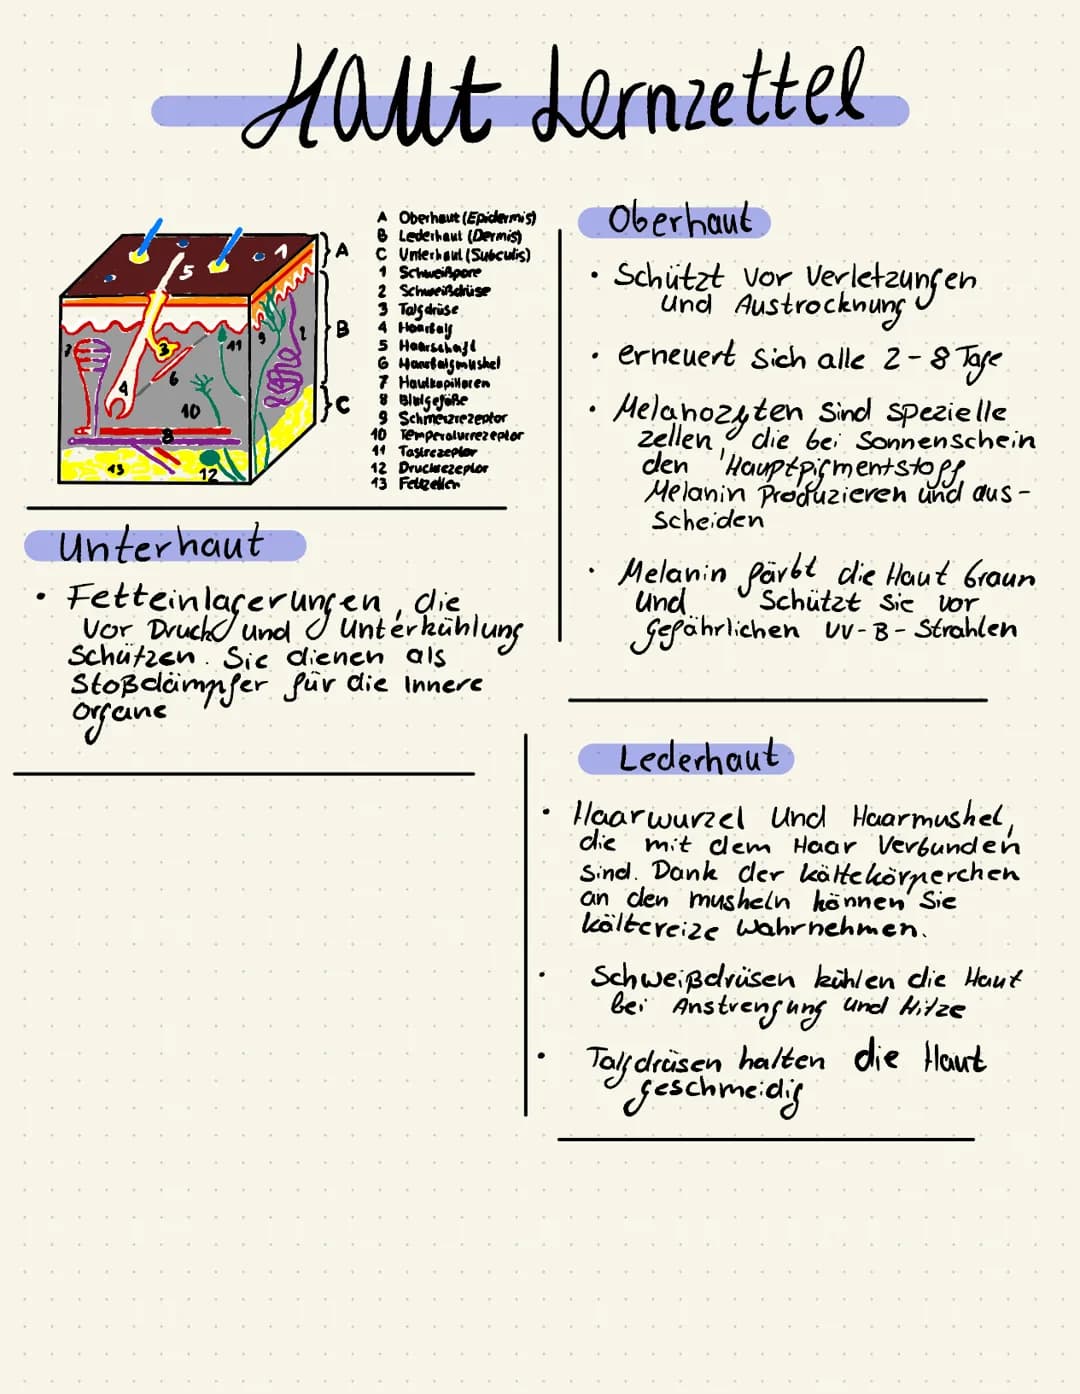 Haut Lernzettel
A Oberhaut (Epidermis)
B Lederhaut (Dermis)
C Unterhaut (Subcutis)
1 Schweißpore
2 Schweißdrüse
3 Talgdrüse
4 Haarbalg
5 Haarschaft
6 Haarbalgmushel
7 Hautkapillaren
8 Blutgefäße
9 Schmerzrezeptor
10 Temperaturrezeptor
11 Tastrezeptor
12 Druckrezeptor
13 Fettzellen
A
B
C
1
5
2
9
11
3
7
6
4
10
8
13
12
Unterhaut
• Fetteinlagerungen, die
vor Druck und Unterkühlung
Schützen. Sie dienen als
Stoßdämpfer für die Innere
Organe
Oberhaut
• Schützt vor Verletzungen
und Austrocknung
• erneuert sich alle 2-8 Tage
• Melanozyten sind spezielle
zellen, die bei Sonnenschein
den Hauptpigmentstoff
Melanin Produzieren und aus-
scheiden
• Melanin färbt die Haut braun
und Schützt sie vor
gefährlichen UV-B-Strahlen
Lederhaut
• Haarwurzel und Haarmushel,
die mit dem Haar Verbunden
sind. Dank der kältekörperchen
an den musheln können Sie
kältereize Wahrnehmen.
• Schweißdrüsen kühlen die Haut
bei Anstrengung und Hitze
• Talgdrüsen halten die Haut
geschmeidig